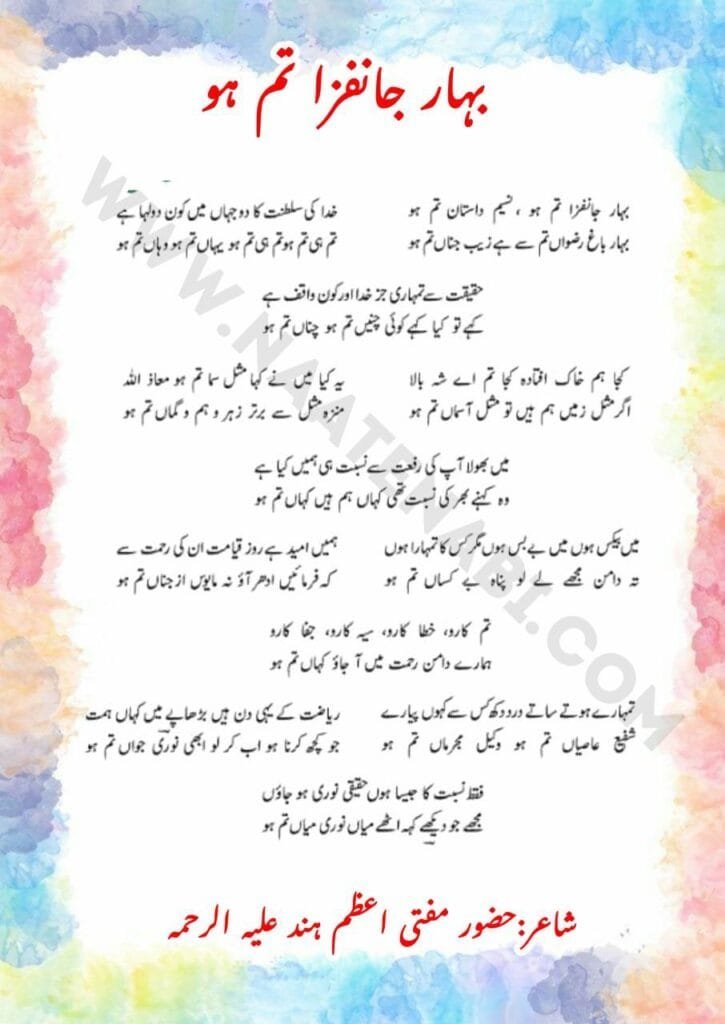 بہار جانفزا تم ہو
بہار جانفزا تم ہو ، نسیم داستان تم ہو
بہار باغ رضواں تم سے ہے زیب جناں تم ہو
خدا کی سلطنت کا دو جہاں میں کون دولہا ہے
تم ہی تم ہو تم ہی تم ہو یہاں تم ہو وہاں تم ہو
حقیقت سے تمہاری جز خدا اور کون واقف ہے
کہے تو کیا کہے کوئی چنیں تم ہو چناں تم ہو
کجا ہم خاک افتادہ کجا تم اے شہ بالا
اگر مثل زمیں ہم ہیں تو مثل آسماں تم ہو
یہ کیا میں نے کہا مثل سما تم ہو معاذ اللہ
منزہ مثل سے برتر زہر و ہم و گماں تم ہو
میں بھولا آپ کی رفعت سے نسبت ہی ہمیں کیا ہے
وہ کہنے بھر کی نسبت تھی کہاں ہم ہیں کہاں تم ہو
میں بیکس ہوں میں بے بس ہوں مگر کس کا تمہارا ہوں
تہ دامن مجھے لے لو پناہ بے کساں تم ہو
ہمیں امید ہے روز قیامت ان کی رحمت سے
کہ فرمائیں ادھر آؤ نہ مایوس از جناں تم ہو
تم کارو، خطا کارو، سیہ کارو، جفا کارو
ہمارے دامن رحمت میں آ جاؤ کہاں تم ہو
تمہارے ہوتے ساتے درد دکھ کس سے کہوں پیارے
شفیع عاصیاں تم ہو وکیل مجرماں تم ہو
ریاضت کے یہی دن ہیں بڑھاپے میں کہاں ہمت
جو کچھ کرنا ہو اب کر لو ابھی نوریؔ جواں تم ہو
فقط نسبت کا جیسا ہوں حقیقی نوری ہو جاؤں
مجھے جو دیکھے کہہ اٹھے میاں نوری میاں تم ہو
شاعر:حضور مفتی اعظم ہند علیہ الرحمہ
WWW.NAATENABI.COM